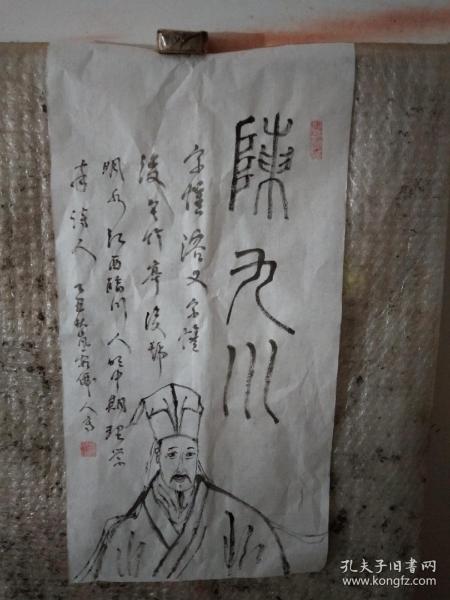 陳九川
字惟溶又字惟
浚号竹亭後號
明水江西臨川人明中期理学
家詩人
孔夫子旧书网
www.kongfz.com